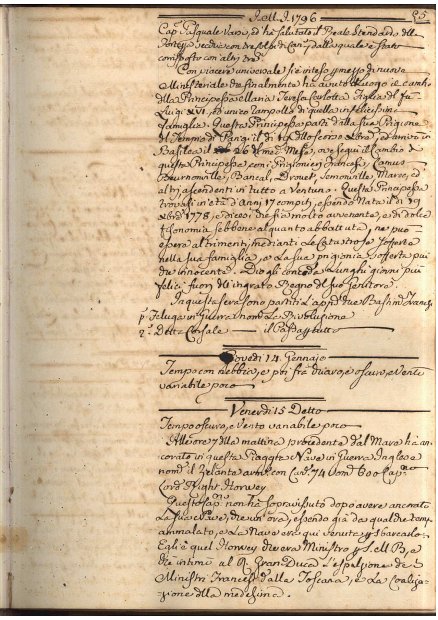 1796 25
Cap. Pasquale Vaso, ed ha salutato il Reale Stendardo della
Fortezza
composto con altri tre
Con piacere universale si è inteso per mezzo di nuova
Ministeriale che finalmente ha avuto luogo il cambio
della Principessa Reale Teresa Carlotta Figlia del fu
Luigi XVI, ed unico rampollo di quella infelicissima
famiglia. Questa Principessa partì dalla sua Prigione
del Tempio di Parigi il dì 19 dello scorso Xbre, ed arrivò in
Basilea il 26 d. mese, ove seguì il cambio di
questa Principessa con i Prigionieri Francesi Camus
Bournonville, Bancal, Drouet, Semonville, Maret, ed
altri ascendenti in tutto a Ventuno. Questa Principessa
trovasi in età d'anni 17 compiti, essendo Nata il dì 19
Xbre 1778, e dicesi che sia molto avvenente, e di dolce
fisonomia sebbene alquanto abbattuta, ne può
essere altrimenti, mediante le Catastrofe sofferte
nella sua famiglia, e la sua prigionia sofferta più
che innocente. Dio gli conceda lunghi giorni più
felici fuori dell'ingrato Regno del suo Genitore.
In questa sera sono partiti
p.a Feluga in Guerra nom. La Rivoluzione
2.a Detta Corsale il
Giovedì 14 Gennaio
Tempo con nebbia, e poi fra chiaro, e oscuro, e Vento
variabile poco
Venerdì 15 Detto
Tempo oscuro, e Vento variabile poco
Alle ore 7 della mattina procedente dal Mare ha an-
corato in questa Piaggia Nave in Guerra Inglese
nom. il Zelante con Can. 74 Uom. 600 Cap.no
Lord Right Harvey
Questo Cap.no non ha sopravissuto dopo avere ancorato
la sua Nave, che un'ora, essendo già da qualche temp.
ammalato, e la Nave era qui venuta per sbarcarlo.
Egli è quel Harvey che era Ministro
che intimò al R. Gran Duca l'espulsione de'
Ministri Francesi dalla Toscana, e la Coaliz-
zione della medesima.